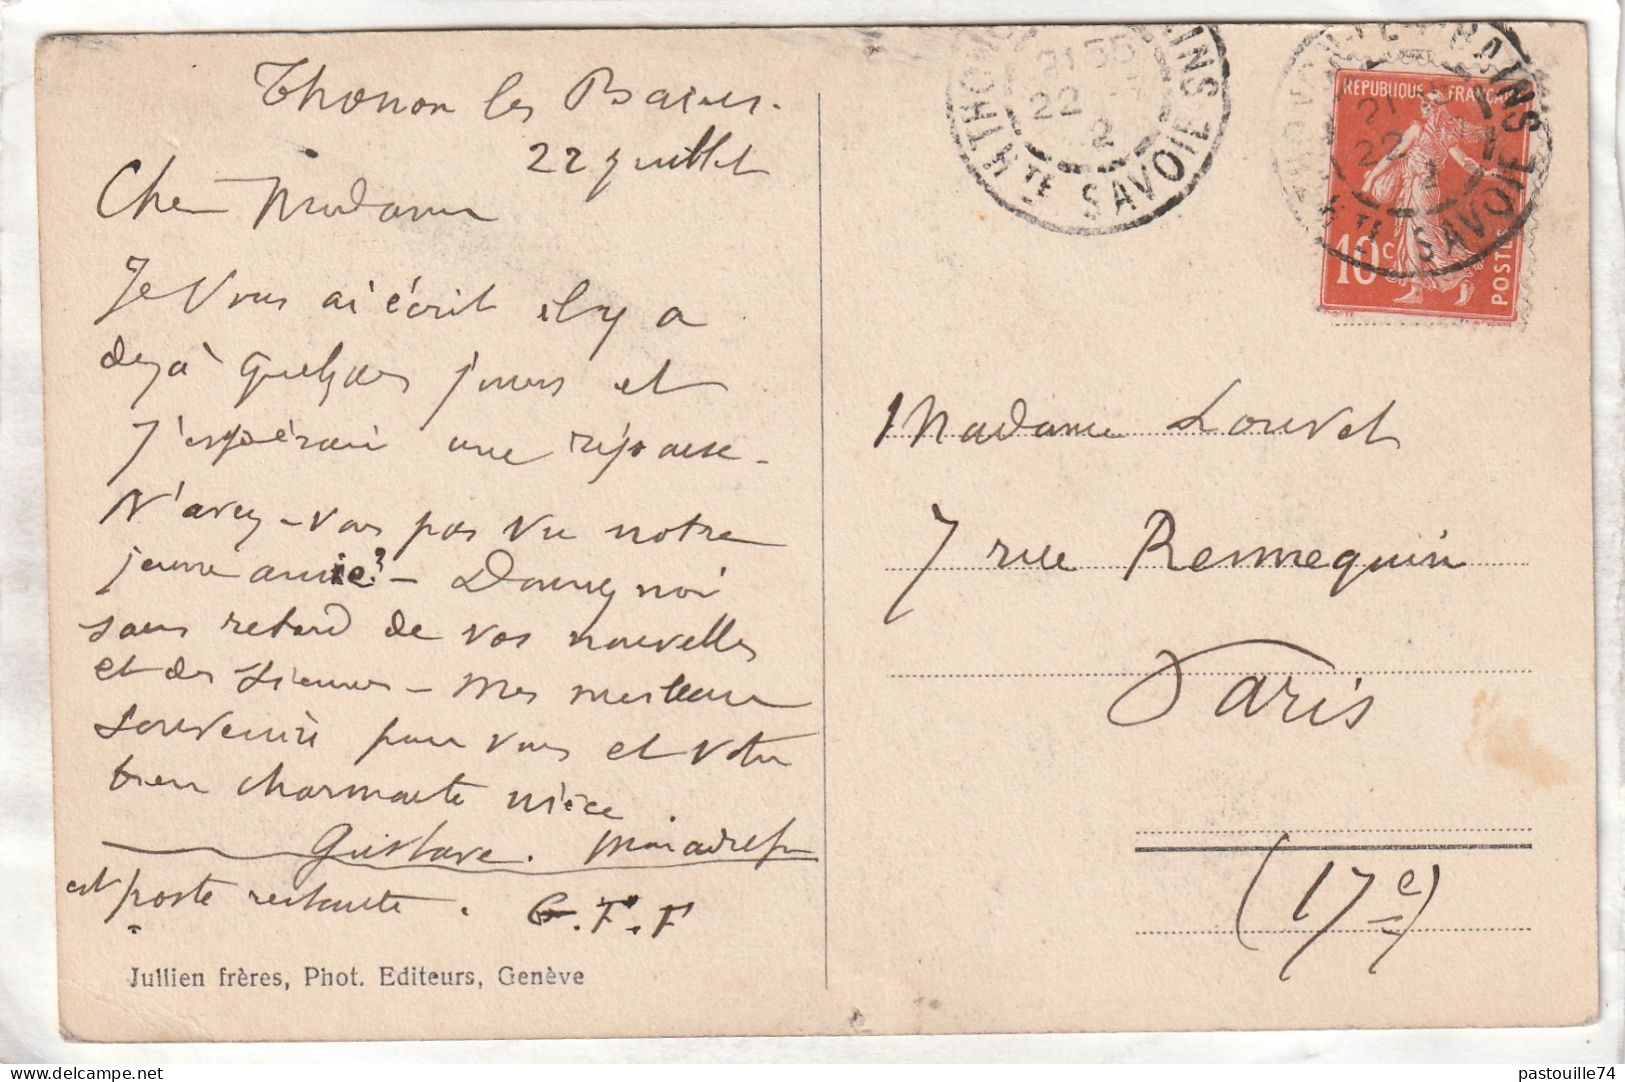 Thonon les Bains.
22 juillet
Chère Madame
Je Vous ai écrit il y a
dejà quelques jours et
j'espérais une réponse -
N'avez-vous pas vu notre
jeune amie? - Donnez moi
sans retard de vos nouvelles
et des siennes - Mes meilleurs
souvenirs pour vous et votre
bien charmante nièce
Gustave.
est poste restante. G. F. F
Jullien frères, Phot. Editeurs, Genève
21 55
22
HTE SAVOIE
REPUBLIQUE FRANÇAISE
10c
POSTES
21
22
HTE SAVOIE
Madame Louvet
7 rue Rennequin
Paris
(17e)
pastouille74